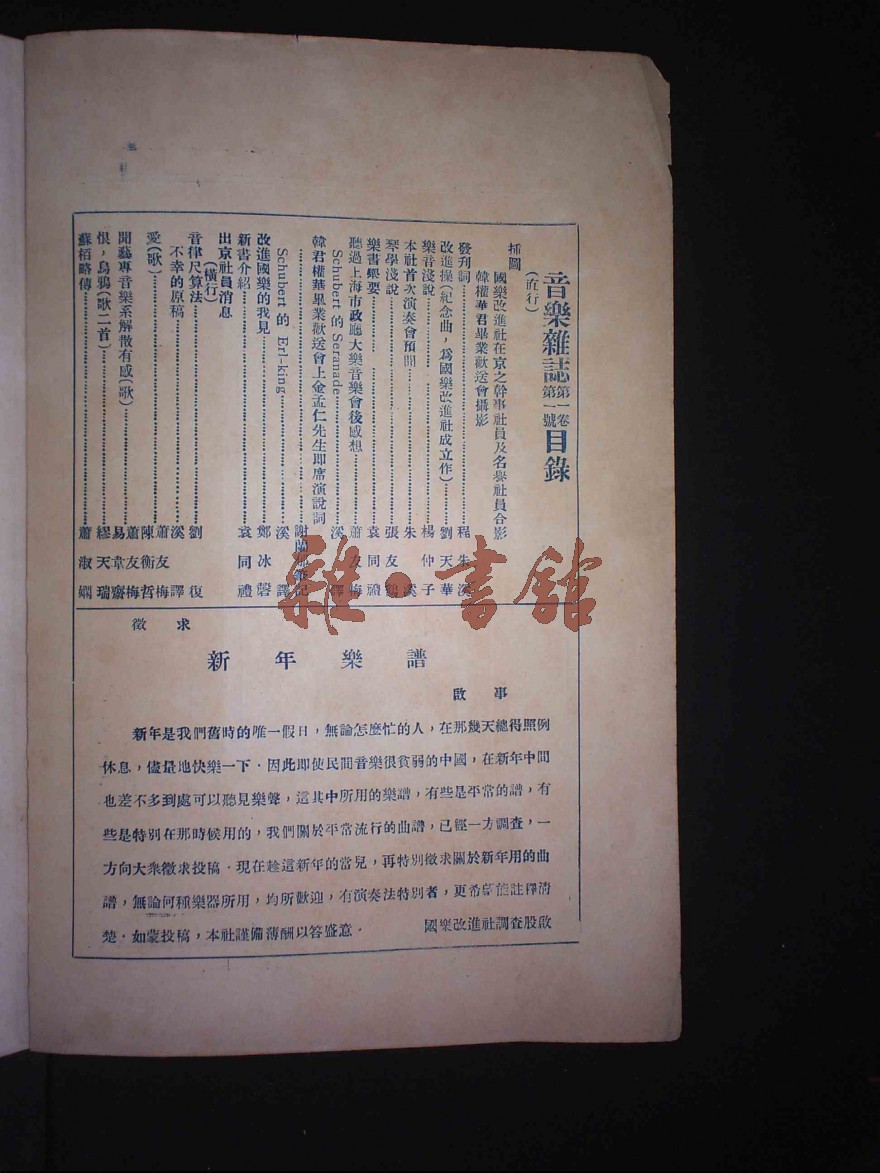 音樂雜誌 第一卷第一號 目錄
(直行)
插圖
國樂改進社在京之幹事社員及名譽社員合影
韓權華君畢業歡送會攝影
發刊詞 程朱溪
改進操(紀念曲,爲國樂改進社成立作) 劉天華
樂音淺說 楊仲子
本社首次演奏會預聞 朱溪
琴學淺說 張友鶴
樂書舉要 袁同禮
聽過上海市政廳大樂音樂會後感想 蕭友梅
Schubert 的 Seranade 溪譯
韓君權華畢業歡送會上金孟仁先生即席演說詞 謝蘭郁筆記
Schubert 的 Erl-king 溪譯
改進國樂的我見 鄭冰磬
新書介紹 袁同禮
出京社員消息
(橫行)
音律尺算法 劉復
不幸的原稿 溪譯
愛(歌) 蕭友梅 陳衡哲
聞藝專音樂系解散有感(歌) 蕭友梅 易韋齋
恨,烏鴉(歌二首) 繆天瑞
蘇栢略傳 蕭淑嫻
徵求
新年樂譜
啟事
新年是我們舊時的唯一假日,無論怎麼忙的人,在那幾天總得照例
休息,儘量地快樂一下.因此即使民間音樂很貧弱的中國,在新年中間
也差不多到處可以聽見樂聲,這其中所用的樂譜,有些是平常的譜,有
些是特別在那時候用的,我們關於平常流行的曲譜,已經一方調查,一
方向大衆徵求投稿.現在趁這新年的當兒,再特別徵求關於新年用的曲
譜,無論何種樂器所用,均所歡迎,有演奏法特別者,更希望能註釋淸
楚.如蒙投稿,本社謹備薄酬以答盛意. 國樂改進社調查股啟
雜·書館